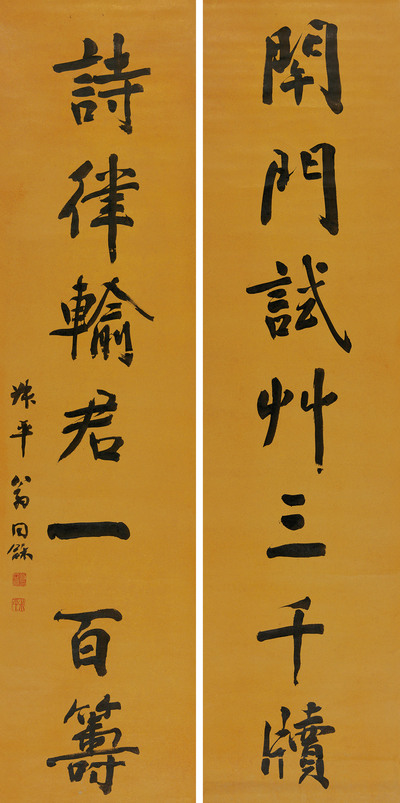 閉門試艸三千牘
詩律輸君一百籌
叔平翁同龢